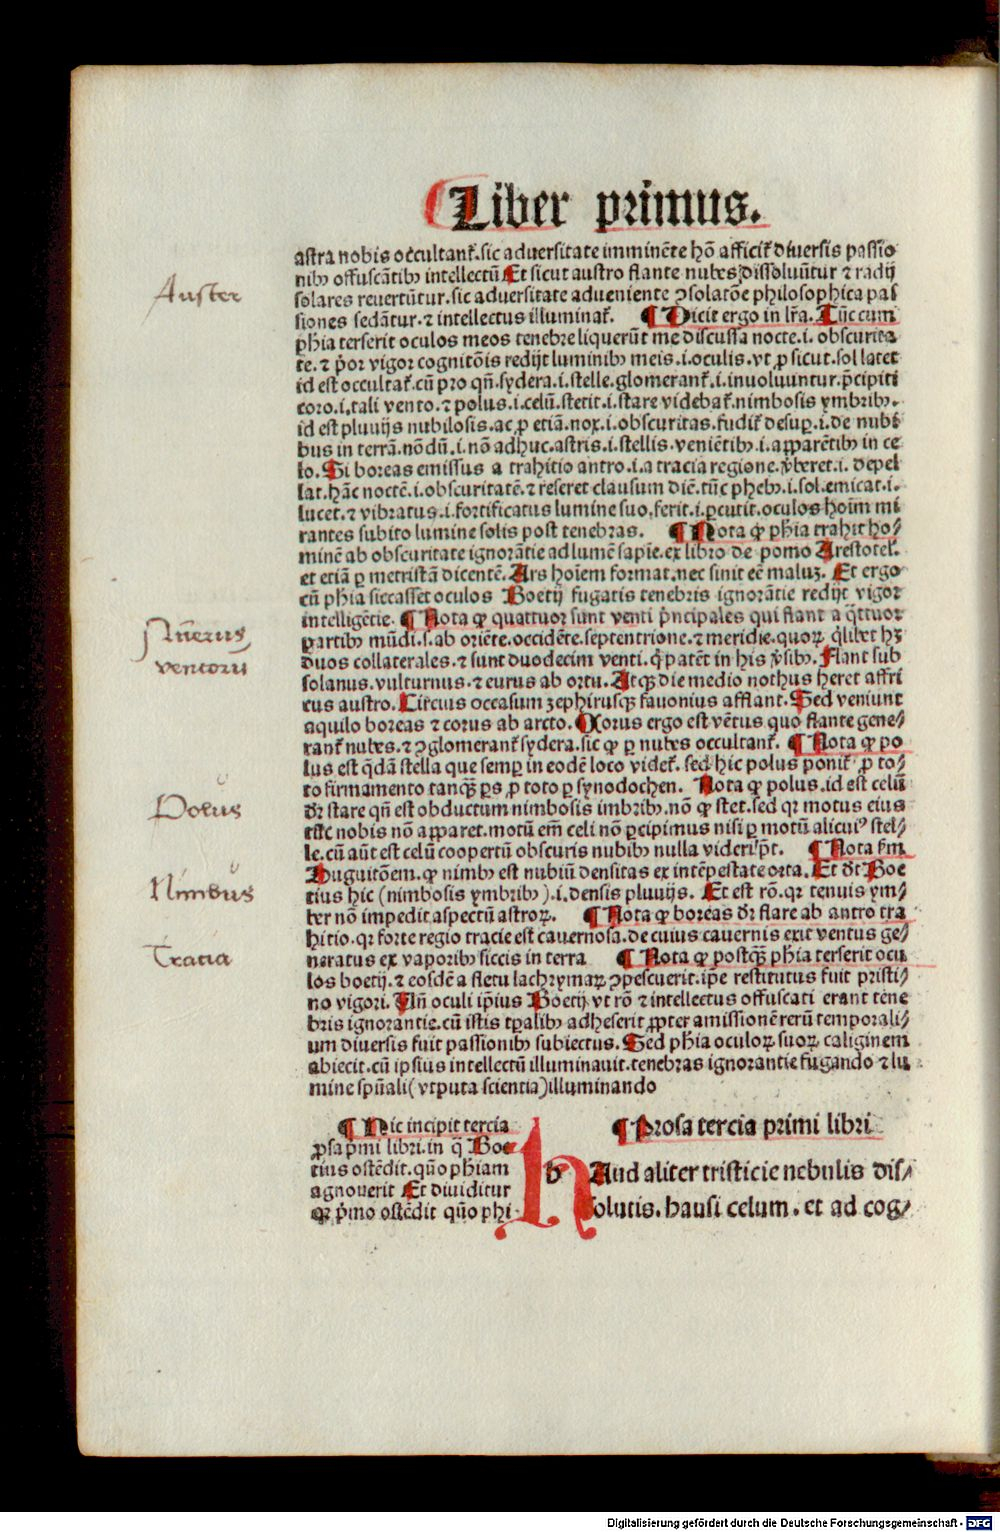 Liber primus.
astra nobis occultant᷑.sic aduersitate imminēte hō afficit᷑ diuersis passio
nibꝰ offuscātibꝰ intellectū Et sicut austro flante nubes dissoluūtur ⁊ radij
Auster
solares reuertūtur.sic aduersitate adueniente ꝯsolatōe philosophica pas
siones sedātur.⁊ intellectus illuminat᷑. ¶ Dicit ergo in lr̄a. Tūc cum
ꝑhia terserit oculos meos tenebre liquerūt me discussa nocte.i. obscurita
te.⁊ p̄or vigor cognitōis redijt luminibꝰ meis.i.oculis.vt ꝓ sicut.sol latet
id est occultat᷑.cū pro qn̄.sydera.i.stelle.glomerant᷑.i.inuoluuntur.p̄cipiti
coro.i.tali vento.⁊ polus.i.celū.stetit.i.stare videbat᷑.nimbosis ymbribꝰ.
id est pluuijs nubilosis.ac ꝓ etiā.nox.i.obscuritas.fudit᷑ desuꝑ.i.de nubi
bus in terrā.nōdū.i.nō adhuc.astris.i.stellis.veniētibꝰ.i.apparētibꝰ in ce
lo. Si boreas emissus a trahitio antro.i.a tracia regione.v̄beret.i. depel
lat.hāc noctē.i.obscuritatē.⁊ reseret clausum diē.tūc phebꝰ.i.sol.emicat.i.
lucet.⁊ vibratus.i.fortificatus lumine suo.ferit.i.ꝑcutit.oculos hoīm mi
rantes subito lumine solis post tenebras. ¶ Nota ꝙ phia trahit ho⸗
minē ab obscuritate ignorātie ad lumē sapīe.ex libro de pomo Arestotel᷑.
et etiā ꝑ metristā dicentē. Ars hoīem format.nec sinit eē maluꝫ. Et ergo
cū phia siccasset oculos Boetij fugatis tenebris ignorātie redijt vigor
Nūerus
intelligētie. ¶ Nota ꝙ quattuor sunt venti p̄ncipales qui flant a q̄ttuor
ꝑartibꝰ mūdi.s.ab oriēte.occidēte.septentrione.⁊ meridie.quoꝝ q̄libet hꝫ
ventorū
duos collaterales.⁊ sunt duodecim venti.q̄ patēt in his v̄sibꝰ. Flant sub
solanus.vulturnus.⁊ eurus ab ortu. Atqꝫ die medio nothus heret affri
cus austro. Circius occasum zephirusqꝫ fauonius afflant. Sed veniunt
aquilo boreas ⁊ corus ab arcto. Chorus ergo est vētus quo flante gene⸗
rant᷑ nubes.⁊ ꝯglomerant᷑ sydera.sic ꝙ ꝑ nubes occultant᷑. ¶ Nota ꝙ po
lus est q̄dā stella que semꝑ in eodē loco videt᷑. sed hic polus ponit᷑ ꝓ to⸗
to firmamento tanqꝫ ꝑs ꝓ toto ꝑ synodochen. Nota ꝙ polus.id est celū
Polus
dr̄ stare qn̄ est obductum nimbosis imbribꝰ.nō ꝙ stet.sed qꝛ motus eius
tūc nobis nō apparet.motū em̄ celi nō ꝑcipimus nisi ꝑ motū alicuiꝰ stel⸗
le.cū aūt est celū coopertū obscuris nubibꝰ nulla videri pt̄. ¶ Nota ẜm
Huguitōem.ꝙ nimbꝰ est nubiū densitas ex intēpestate orta. Et dr̄t Boe
Nimbus
tius hic (nimbosis ymbribꝰ).i.densis pluuijs. Et est rō.qꝛ tenuis ym⸗
ber nō impedit aspectū astroꝝ. ¶ Nota ꝙ boreas dr̄ flare ab antro tra
hitio.qꝛ forte regio tracie est cauernosa.de cuius cauernis exit ventus ge⸗
Tracia
neratus ex vaporibꝰ siccis in terra ¶ Nota ꝙ postqꝫ phia terserit ocu
los boetij.⁊ eosdē a fletu lachrymaꝝ ꝯpescuerit.ip̄e restitutus fuit pristi⸗
no vigori. Nā oculi ip̄ius Boetij vt rō ⁊ intellectus offuscati erant tene
bris ignorantie.cū istis tꝑalibꝰ adheserit ꝓpter amissionē rerū temporali⸗
um diuersis fuit passionibꝰ subiectus. Sed phia oculoꝝ suoꝝ caliginem
abiecit.cū ipsius intellectū illuminauit.tenebras ignorantie fugando ⁊ lu
mine spūali(vtputa scientia)illuminando
¶ Hic incipit tercia
ꝓsa p̄mi libri.in q̄ Boe
tius ostēdit.quō phiam
agnouerit Et diuiditur
qꝛ p̄mo ostēdit quō phi
¶ Prosa tercia primi libri
h Aud aliter tristicie nebulis dis⸗
solutis.hausi celum.et ad cog⸗
Digitalisierung gefördert durch die Deutsche Forschungsgemeinschaft - DFG